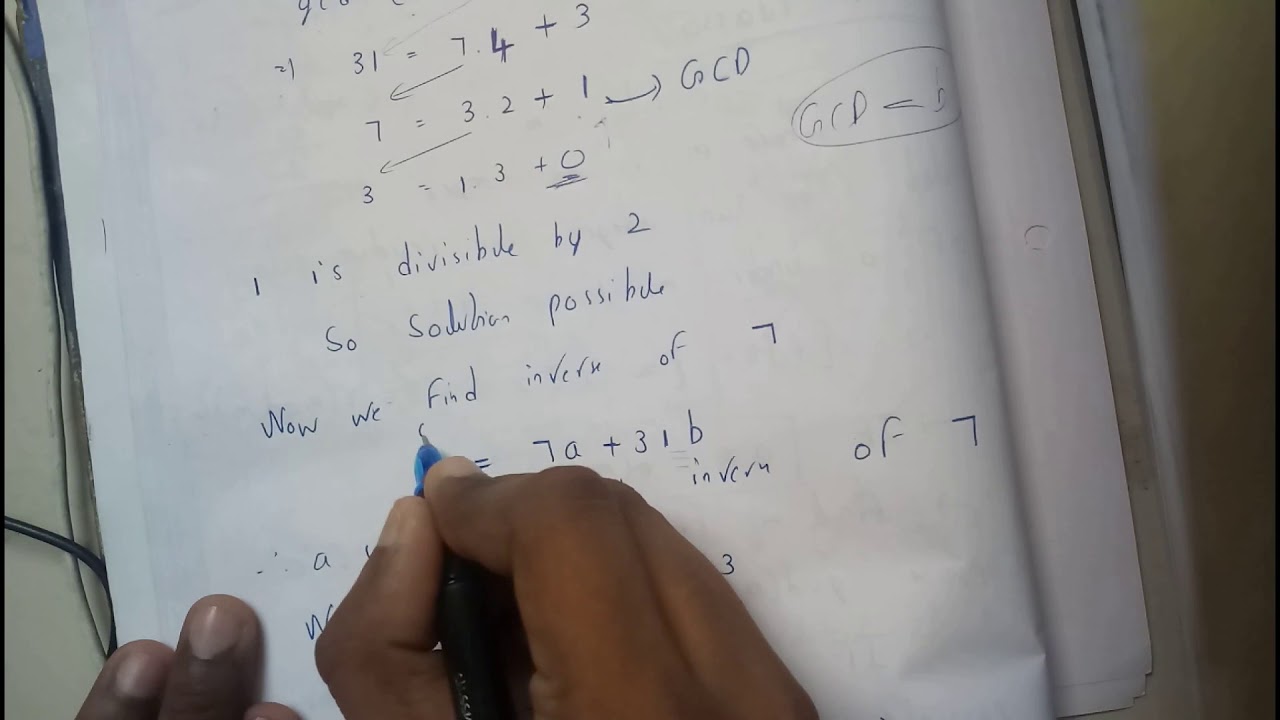 =) 31 = 7.4 + 3
7 = 3.2 + 1 → GCD
GCD =
3 = 1.3 + 0
1 is divisible by 2
So solution possible
Now we find inverse of 7
= 7a + 31b
inverse of 7
∴ a
3
W